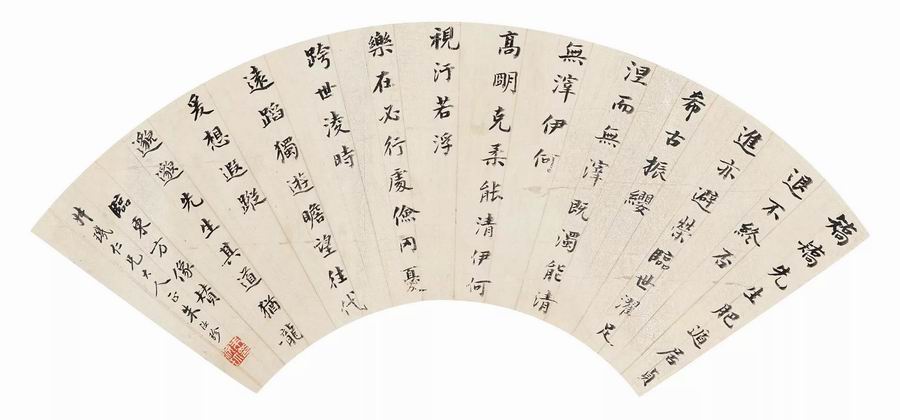 矯矯先生肥遁居貞
退不終否
進亦避榮臨世濯足
希古振纓
涅而無滓既濁能清
無滓伊何
高明克柔能清伊何
視汙若浮
樂在必行處儉罔憂
跨世淩時
遠蹈獨遊瞻望往代
爰想遐蹤
邈邈先生其道猶龍
臨東方像贊朱汝珍
璣仁兄大人正